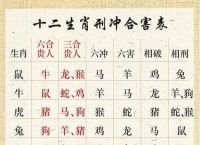 十二生肖刑冲合害表
生肖 六合贵人 三合贵人 六冲 六害 相破 相刑
鼠 牛 龙、猴 马 羊 鸡 兔
牛 鼠 蛇、鸡 羊 马 龙 羊、狗
虎 猪 马、狗 猴 蛇 猪 蛇、猴
兔 狗 羊、猪 鸡 龙 马 鼠